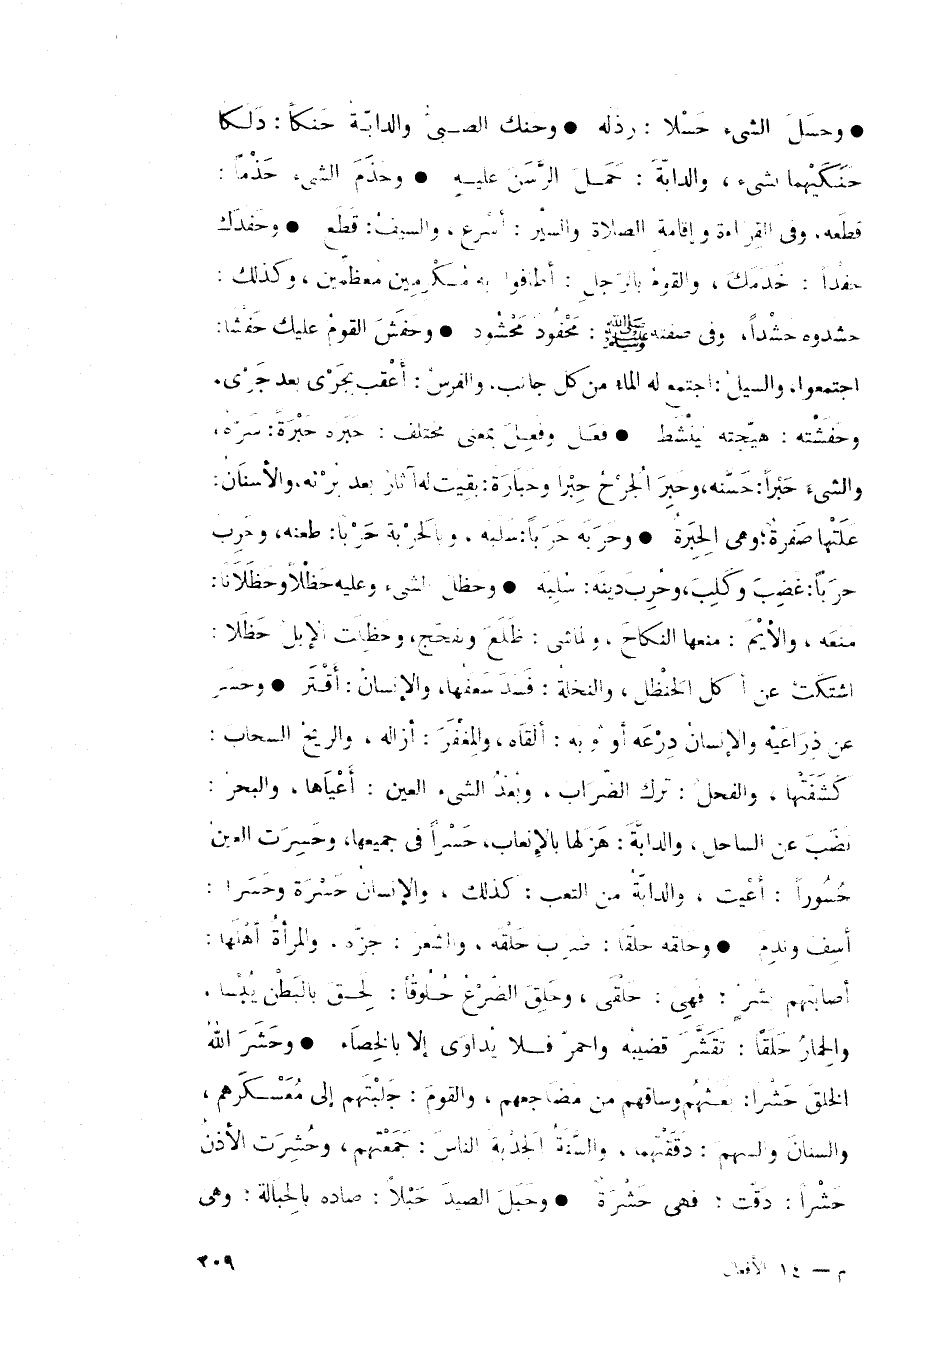 ● وحسَلَ الشىء حَسْلا : رذله ● وحنك الصبىُّ والدابّةَ حَنكاً : دَلَكا
حَنَكَيْهما بشىء ، والدابّةَ : حَمَلَ الرَّسَنَ عليه ● وحذَمَ الشىء حَذْماً :
قطَعه. وفى القراءة وإقامةِ الصلاة والسيْر : أسْرع . والسيفُ : قَطَع ● وحَفدَك
حفْداً : خَدَمَكَ ، والقومُ بالرجلِ : أطافوا به مُكْرِمِين معظّمين ، وكذلك :
حشدوه حَشْداً، وفى صفته ﷺ : مَحْفُود مَحْشُود ● وحفَشَ القومُ عليك حَفْشا:
اجتمعوا. والسيلُ : اجتمع له الماء من كل جانب. والفرسُ : أعْقب بجَرْى بعد جَرْى.
وحَفَشْته : هيّجته لينْشَط ● فعَل وفَعِلَ بمعنى مختلف : حبَره حَبْرَةً : سَرّه،
والشىءَ حَبْراً : حَسَّنه، وحَبِرَ الجُرْحُ حِبْرا وحَبَارَة : بقيت له آثار بعد بُرْئه. والأسنانُ :
عَلَتْها صَفرةٌ؛ وهى الحِبَرَةُ ● وحرَبَه حَرَباً: سلَبه . وبالحَرْبة حَرْبًا : طعنه، وحَرِب
حرَبًا: غضِبَ وكَلِبَ، وحُرِب دينَه : سُلِبَه ● وحظَل الشىء وعليه حَظْلاً وحَظَلَانا:
منَعه ، والأيْمَ : منعها النكاحَ . والماشى : ظَلَعَ وتفحّج، وحَظِلت الإبلُ حَظَلا :
اشتكَتْ عن أكل الحَنْظل ، والنخلةُ : فَسدَ سَعَفُها، والإنسانُ : أقْتَر ● وحسَر
عن ذِرَاعَيْه والإنسانُ دِرْعَه أو ثوبه : ألقاه ، والمِغْفَرَ : أزاله ، والريحُ السحاب :
كَشَفَتْها ، والفحلُ : ترك الضِّرَاب ، وبُعْدُ الشىء العين : أعْيَاها ، والبحرُ :
نَضَبَ عن الساحل ، والدابّةَ : هَزَلها بالإتعاب، حَسْراً فى جميعها، وحَسِرَت العين
حُسُوراً : أعْيت ، والدابّةُ من التعب : كذلك ، والإنسانُ حَسْرَة وحَسَرا :
أسِفَ وندِمَ ● وحلقه حلْقا : ضرب حَلْقه ، والشعرَ : جزّه . والمرأةُ أهْلَها :
أصابتهم بشرٍّ : فهى : حَلْقَى ، وحَلِقَ الضَّرْعُ حُلُوقاً : لَحِق بالبَطْن يُبْسا .
والحِمارُ حَلَقًا : تقَشَّرَ قضيبُه واحمرّ فلا يُداوَى إلا بالخِصَاء ● وحَشَرَ اللهُ
الخلقَ حَشْرا: بعثهُم وساقهم من مضاجعهم ، والقومَ : جَلبْتَهم إلى مُعَسْكَرهم ،
والسنانَ والسهمَ : دقَّقْتَهما . والسَّنَةُ الجَدْبة الناسَ : جَمَعَتْهم ، وحُشِرَت الأذنُ
حَشْراً : دَقّت : فهى حَشْرَةٌ ● وحَبَلَ الصيدَ حَبْلاً : صاده بالحِبالة : وهى
م — ١٤ الأفعال
٢٠٩